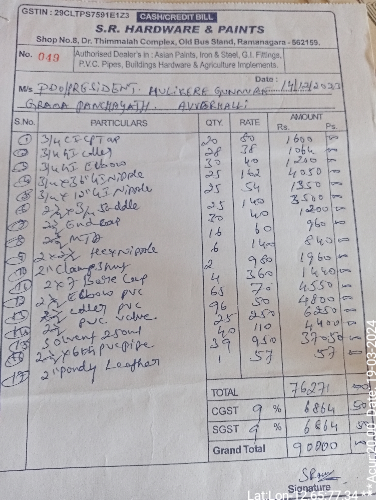 GSTIN : 29CLTPS7591E1Z3 CASH/CREDIT BILL
S.R. HARDWARE & PAINTS
Shop No.8, Dr. Thimmalah Complex, Old Bus Stand, Ramanagara - 562159.
No. 049 Authorised Dealer's in : Asian Paints, Iron & Steel, G.I. Fittings,
P.V.C. Pipes, Building Hardware & Agriculture Implements.
Date : 14/12/2023
M/s PDO/PRESIDENT. HULIKERE GUNNURE
GRAMA PANCHAYATH. AVVERHALLI
S.No. PARTICULARS QTY. RATE AMOUNT
Rs. Ps.
1 3/4 CI CP Tap 20 80 1600 00
2 3/4 GI 28 38 1064 00
3 3/4 GI Elbow 30 40 1200 00
4 3/4 x 36" GI Nipple 25 162 4050 00
5 3/4 x 12" GI Nipple 25 54 1350 00
6 Saddle 25 140 3500 00
7 End cap 30 40 1200 00
8 MTA 16 60 960 00
9 Hex Nipple 6 140 840 00
10 2" 2 980 1960 00
11 Bore Cap 4 360 1440 00
12 Elbow pvc 65 70 4550 00
13 pvc 96 50 4800 00
14 pvc valve 25 250 6250 00
15 Solvent 250ml 40 110 4400 00
16 pvc pipe 39 950 37050 00
17 2" Leather 1 57 57 00
TOTAL 76271 00
CGST 9 % 6864 50
SGST 9 % 6864 50
Grand Total 90000 00
Signature
Lat Lon: 12.65,77.34
Acu: 20.00 Date: 19-03-2024